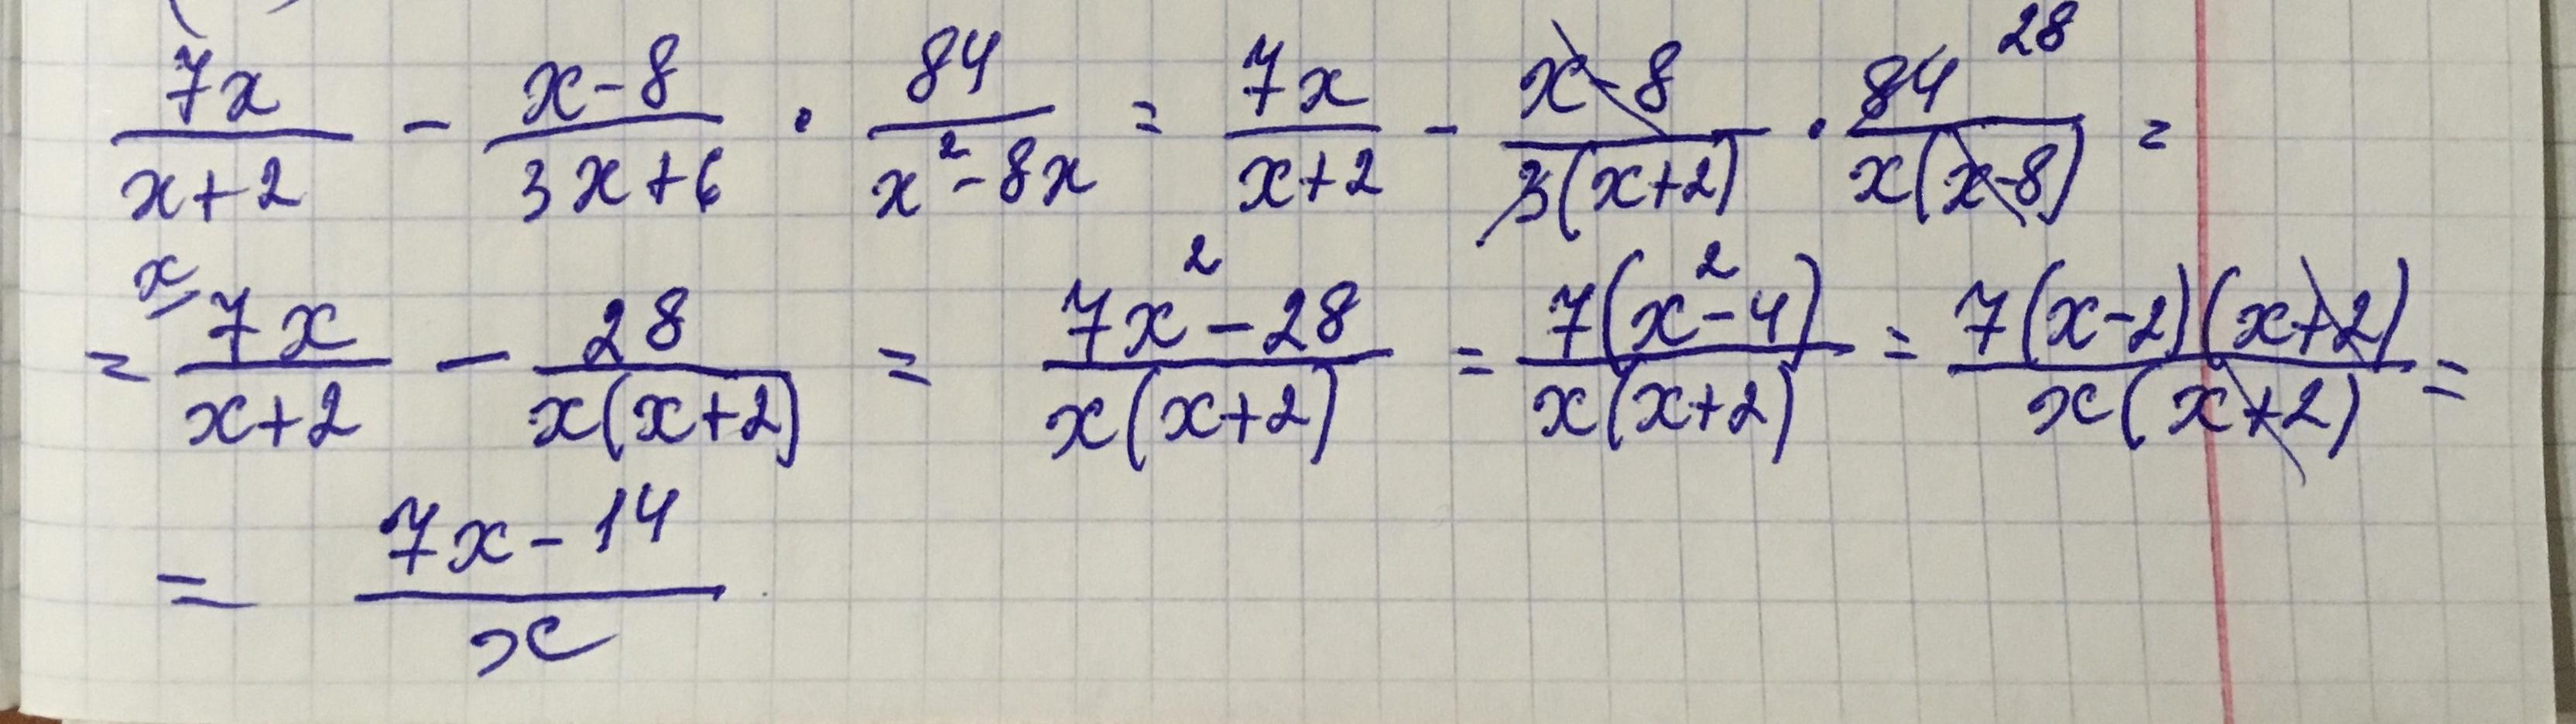 7x/(x+2) - (x-8)/(3x+6) · 84/(x²-8x) = 7x/(x+2) - (x-8)/(3(x+2)) · 84 28/(x(x-8)) =
= x 7x/(x+2) - 28/(x(x+2)) = (7x²-28)/(x(x+2)) = 7(x²-4)/(x(x+2)) = 7(x-2)(x+2)/(x(x+2)) =
= (7x-14)/x